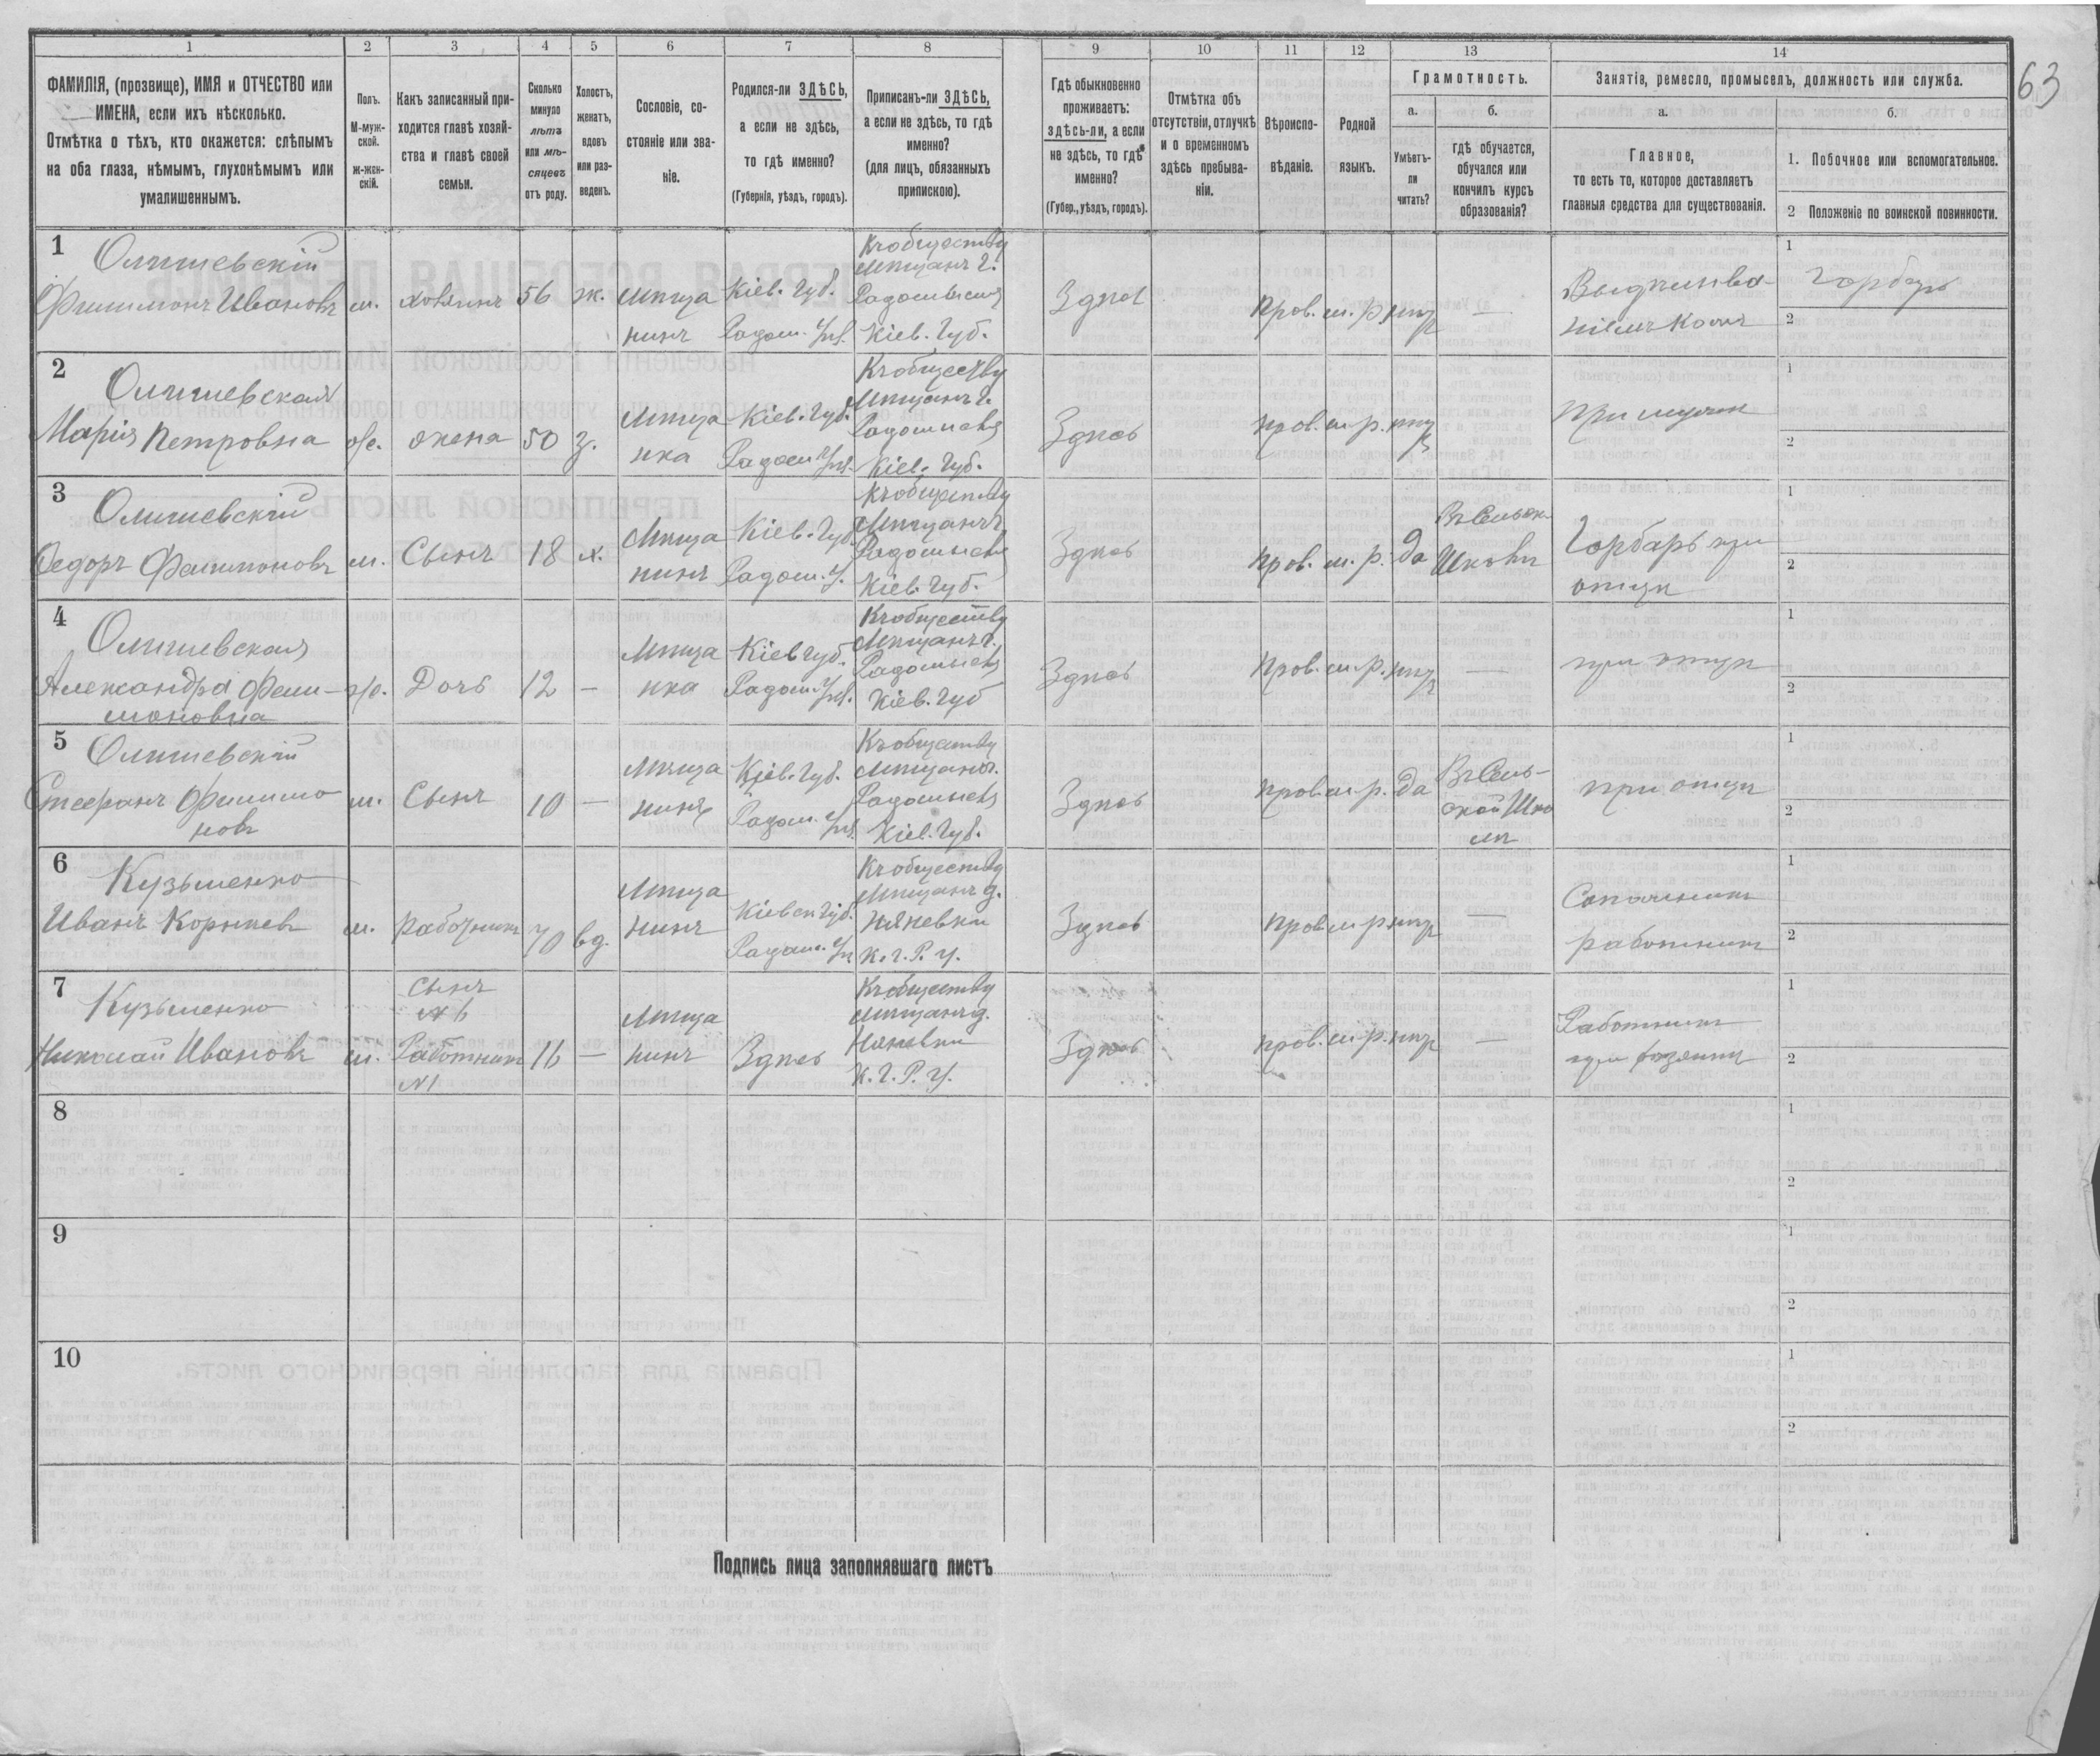 63
1 2 3 4 5 6 7 8 9 10 11 12 13 14
ФАМИЛІЯ, (прозвище), ИМЯ и ОТЧЕСТВО или
ИМЕНА, если ихъ нѣсколько.
Отмѣтка о тѣхъ, кто окажется: слѣпымъ
на оба глаза, нѣмымъ, глухонѣмымъ или
умалишеннымъ.
Полъ.
М-муж-
ской.
ж-жен-
скій.
Какъ записанный при-
ходится главѣ хозяй-
ства и главѣ своей
семьи.
Сколько
минуло
лѣтъ
или мѣ-
сяцевъ
отъ роду.
Холостъ,
женатъ,
вдовъ
или раз-
веденъ.
Сословіе, со-
стояніе или зва-
ніе.
Родился-ли ЗДѢСЬ,
а если не здѣсь,
то гдѣ именно?
(Губернія, уѣздъ, городъ).
Приписанъ-ли ЗДѢСЬ,
а если не здѣсь, то гдѣ
именно?
(для лицъ, обязанныхъ
припискою).
Гдѣ обыкновенно
проживаетъ:
здѣсь-ли, а если
не здѣсь, то гдѣ
именно?
(Губер., уѣздъ, городъ).
Отмѣтка объ
отсутствіи, отлучкѣ
и о временномъ
здѣсь пребыва-
ніи.
Вѣроиспо-
вѣданіе.
Родной
языкъ.
Грамотность.
а.
Умѣетъ-
ли
читать?
б.
гдѣ обучается,
обучался или
кончилъ курсъ
образованія?
Занятіе, ремесло, промыселъ, должность или служба.
а.
Главное,
то есть то, которое доставляетъ
главныя средства для существованія.
б.
1. Побочное или вспомогательное.
2 Положеніе по воинской повинности.
1
Олишевскій
Филимонъ Ивановъ
м.
хозяинъ
56
ж.
мѣща
нинъ
Кіев. Губ.
Радом. уѣз.
Къ обществу
мѣщанъ г.
Радомысля
Кіев. Губ.
Здѣсь
Прав.
м. р.
нѣт
—
кожъ
1
Горбарь
2
2
Олишевская
Марія Петровна
же.
жена
50
з.
мѣща
нка
Кіев. Губ.
Радом. уѣз.
Къ обществу
мѣщанъ г.
Кіев. Губ.
Здѣсь
прав.
м. р.
нѣт
при мужѣ
1
2
3
Олишевскій
Федоръ Филимоновъ
м.
Сынъ
18
х.
Мѣща
нинъ
Кіев. Губ.
Радом. у.
Къ обществу
мѣщанъ г.
Кіев. Губ.
Здѣсь
прав.
м. р.
да
Школѣ
Горбарь при
отцѣ
1
2
4
Олишевская
Александра Фили-
моновна
же.
Дочь
12
—
Мѣща
нка
Кіев губ.
Радом. уѣз.
Къ обществу
мѣщанъ г.
Кіев. Губ
Здѣсь
Прав.
м. р.
нѣт
—
при отцѣ
1
2
5
Олишевскій
Стефанъ Филимо
новъ
м.
Сынъ
10
—
мѣща
нинъ
Кіев. Губ.
Радом. уѣз.
Къ обществу
мѣщанъ г.
Кіев. Губ.
Здѣсь
прав
м. р.
да
Въ Сель-
ской Шко
лѣ
при отцѣ
1
2
6
Кузьменко
Иванъ Корнѣев
м.
работникъ
70
вд.
Мѣща
нинъ
Кіевск губ.
Радом. уѣ
Къ обществу
мѣщанъ д.
К. г. Р. у.
Здѣсь
прав
м р
нѣт
—
работникъ
1
2
7
Кузьменко
Николай Ивановъ
м.
Сынъ
№ 6
Работникъ
№1
16
—
мѣща
нинъ
Здѣсь
Къ обществу
мѣщанъ д.
К. г. Р. У.
Здѣсь
прав.
м. р.
нѣт
—
Работникъ
при
1
2
8
1
2
9
1
2
10
1
2
Подпись лица заполнявшаго листъ